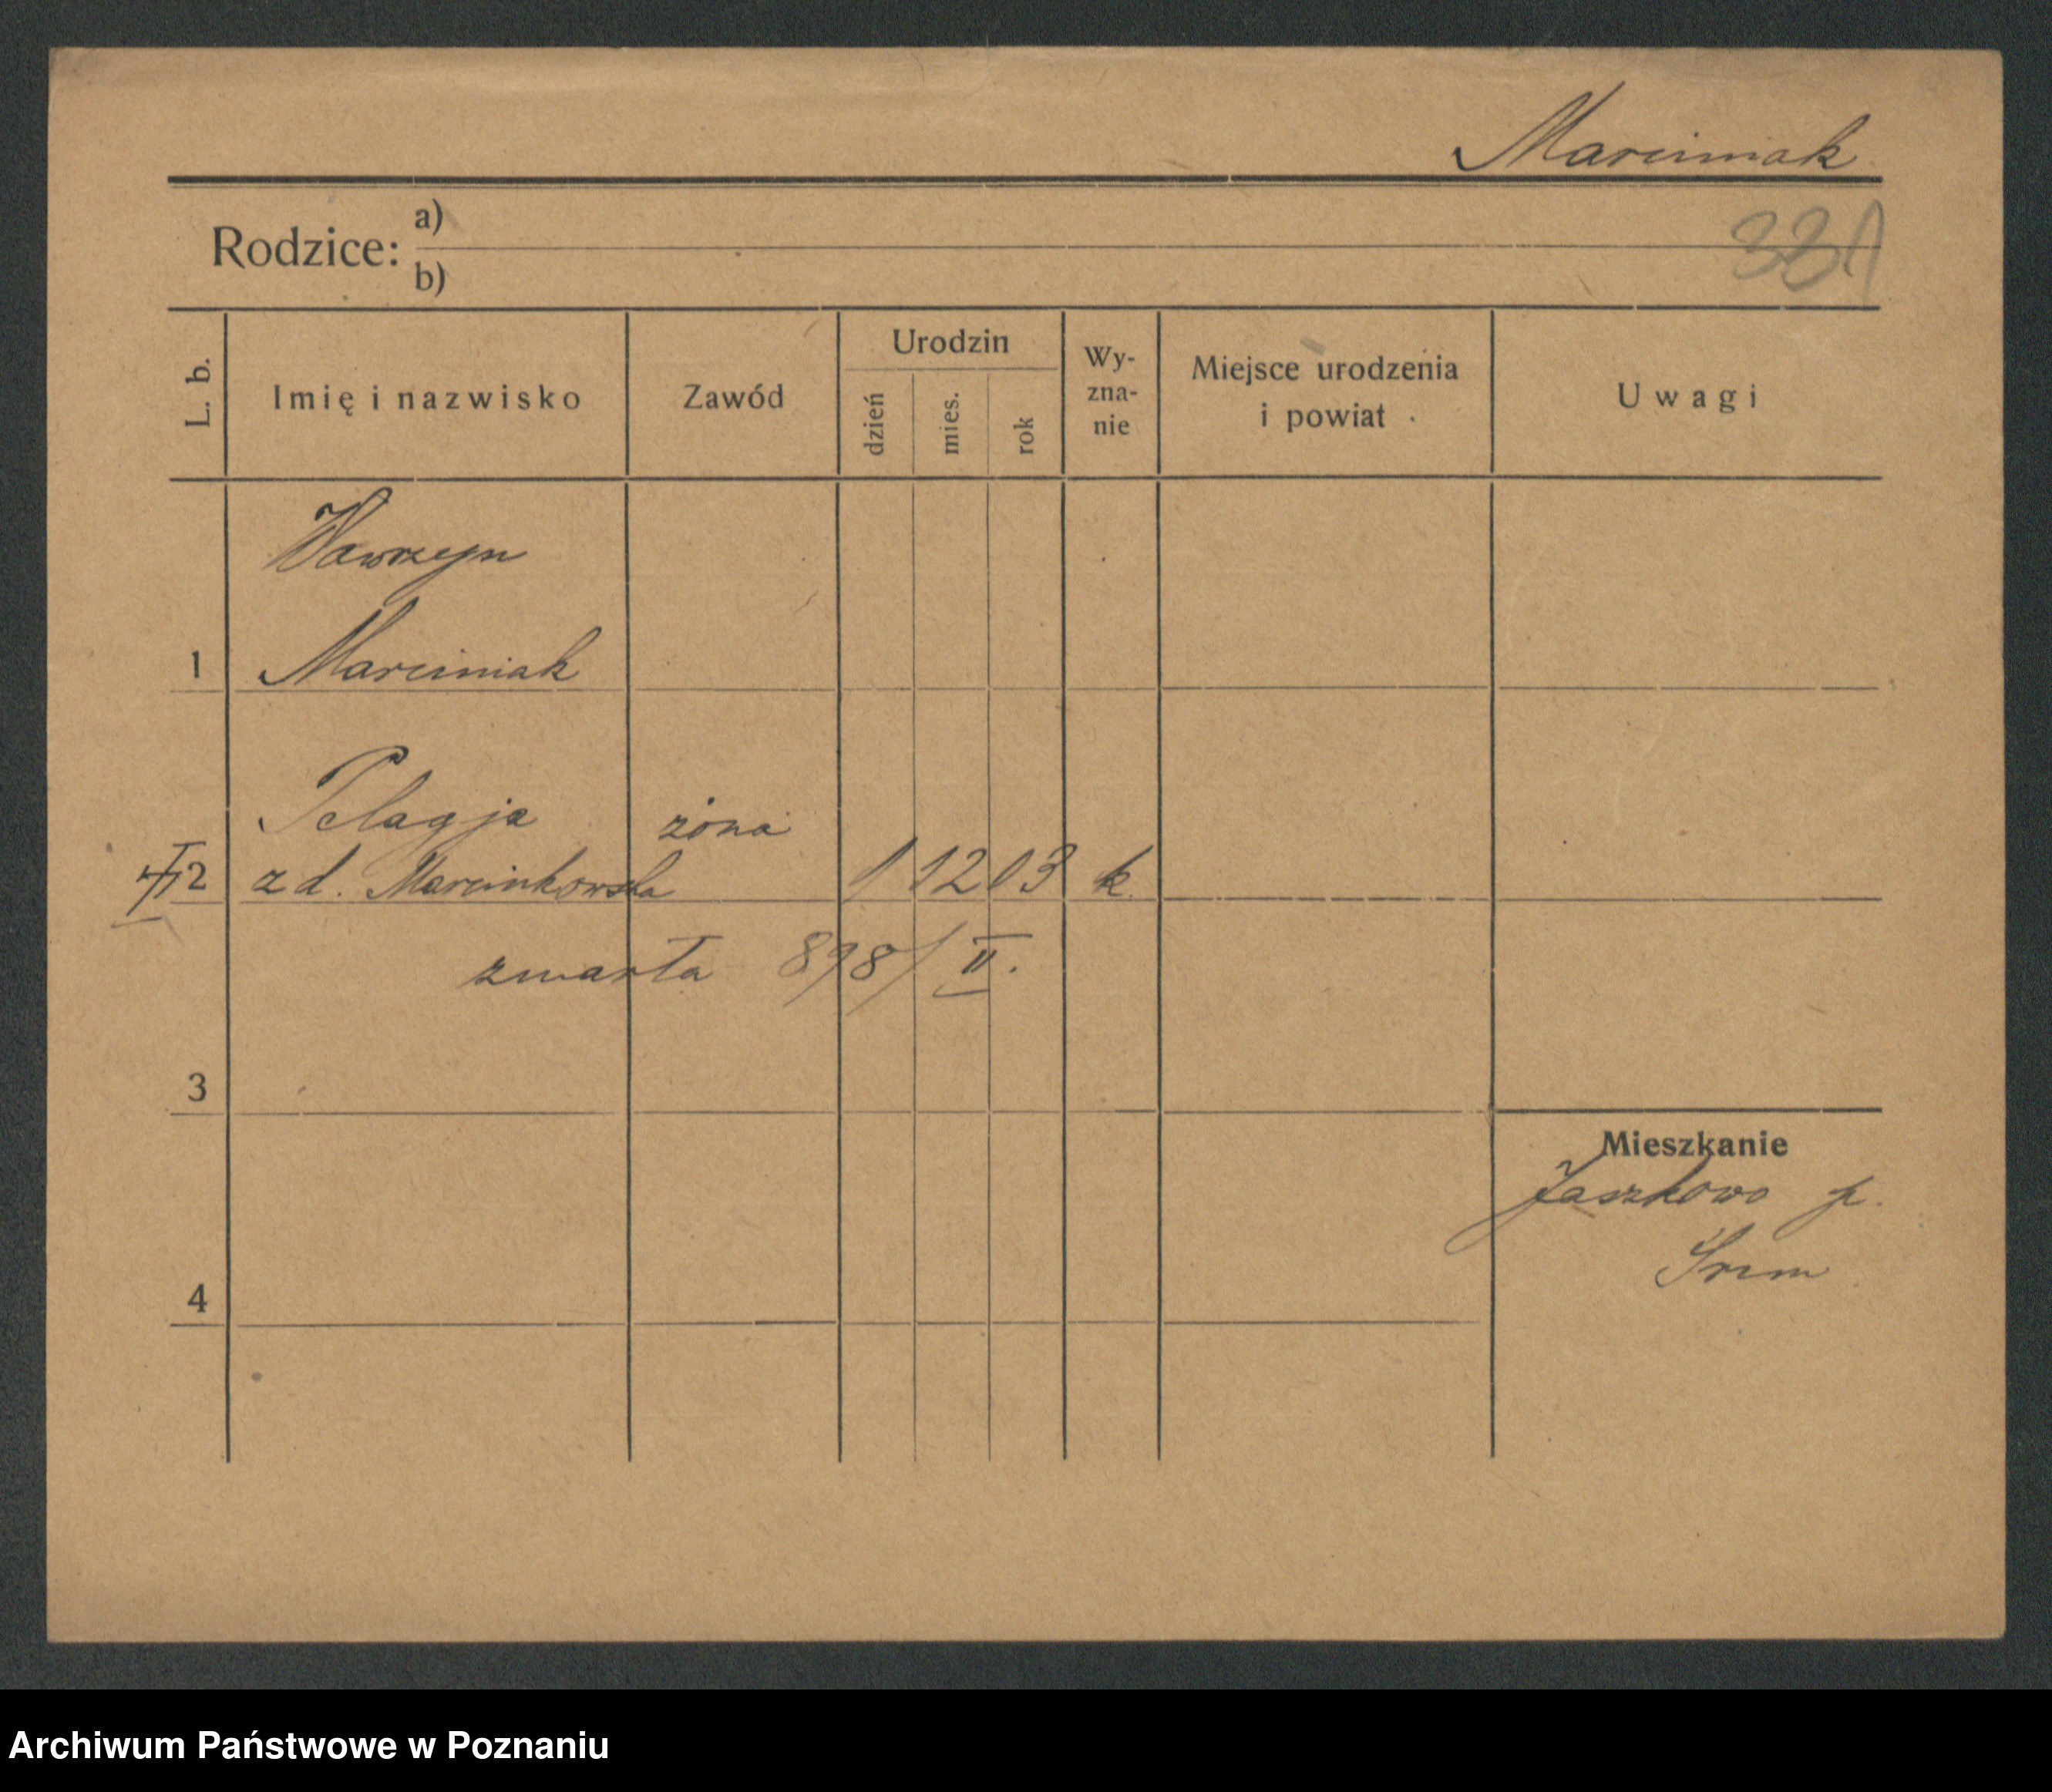 Marciniak
Rodzice: a)
b)
331
L. b.
Imię i nazwisko
Zawód
Urodzin
dzień
mies.
rok
Wy-
zna-
nie
Miejsce urodzenia
i powiat
Uwagi
Wawrzyn
1 Marciniak
Pelagja żona
2 z d. Marcinkowska 1 12 03 k.
zmarła 898/II.
3
Mieszkanie
Jaszkowo p.
Śrem
4
Archiwum Państwowe w Poznaniu